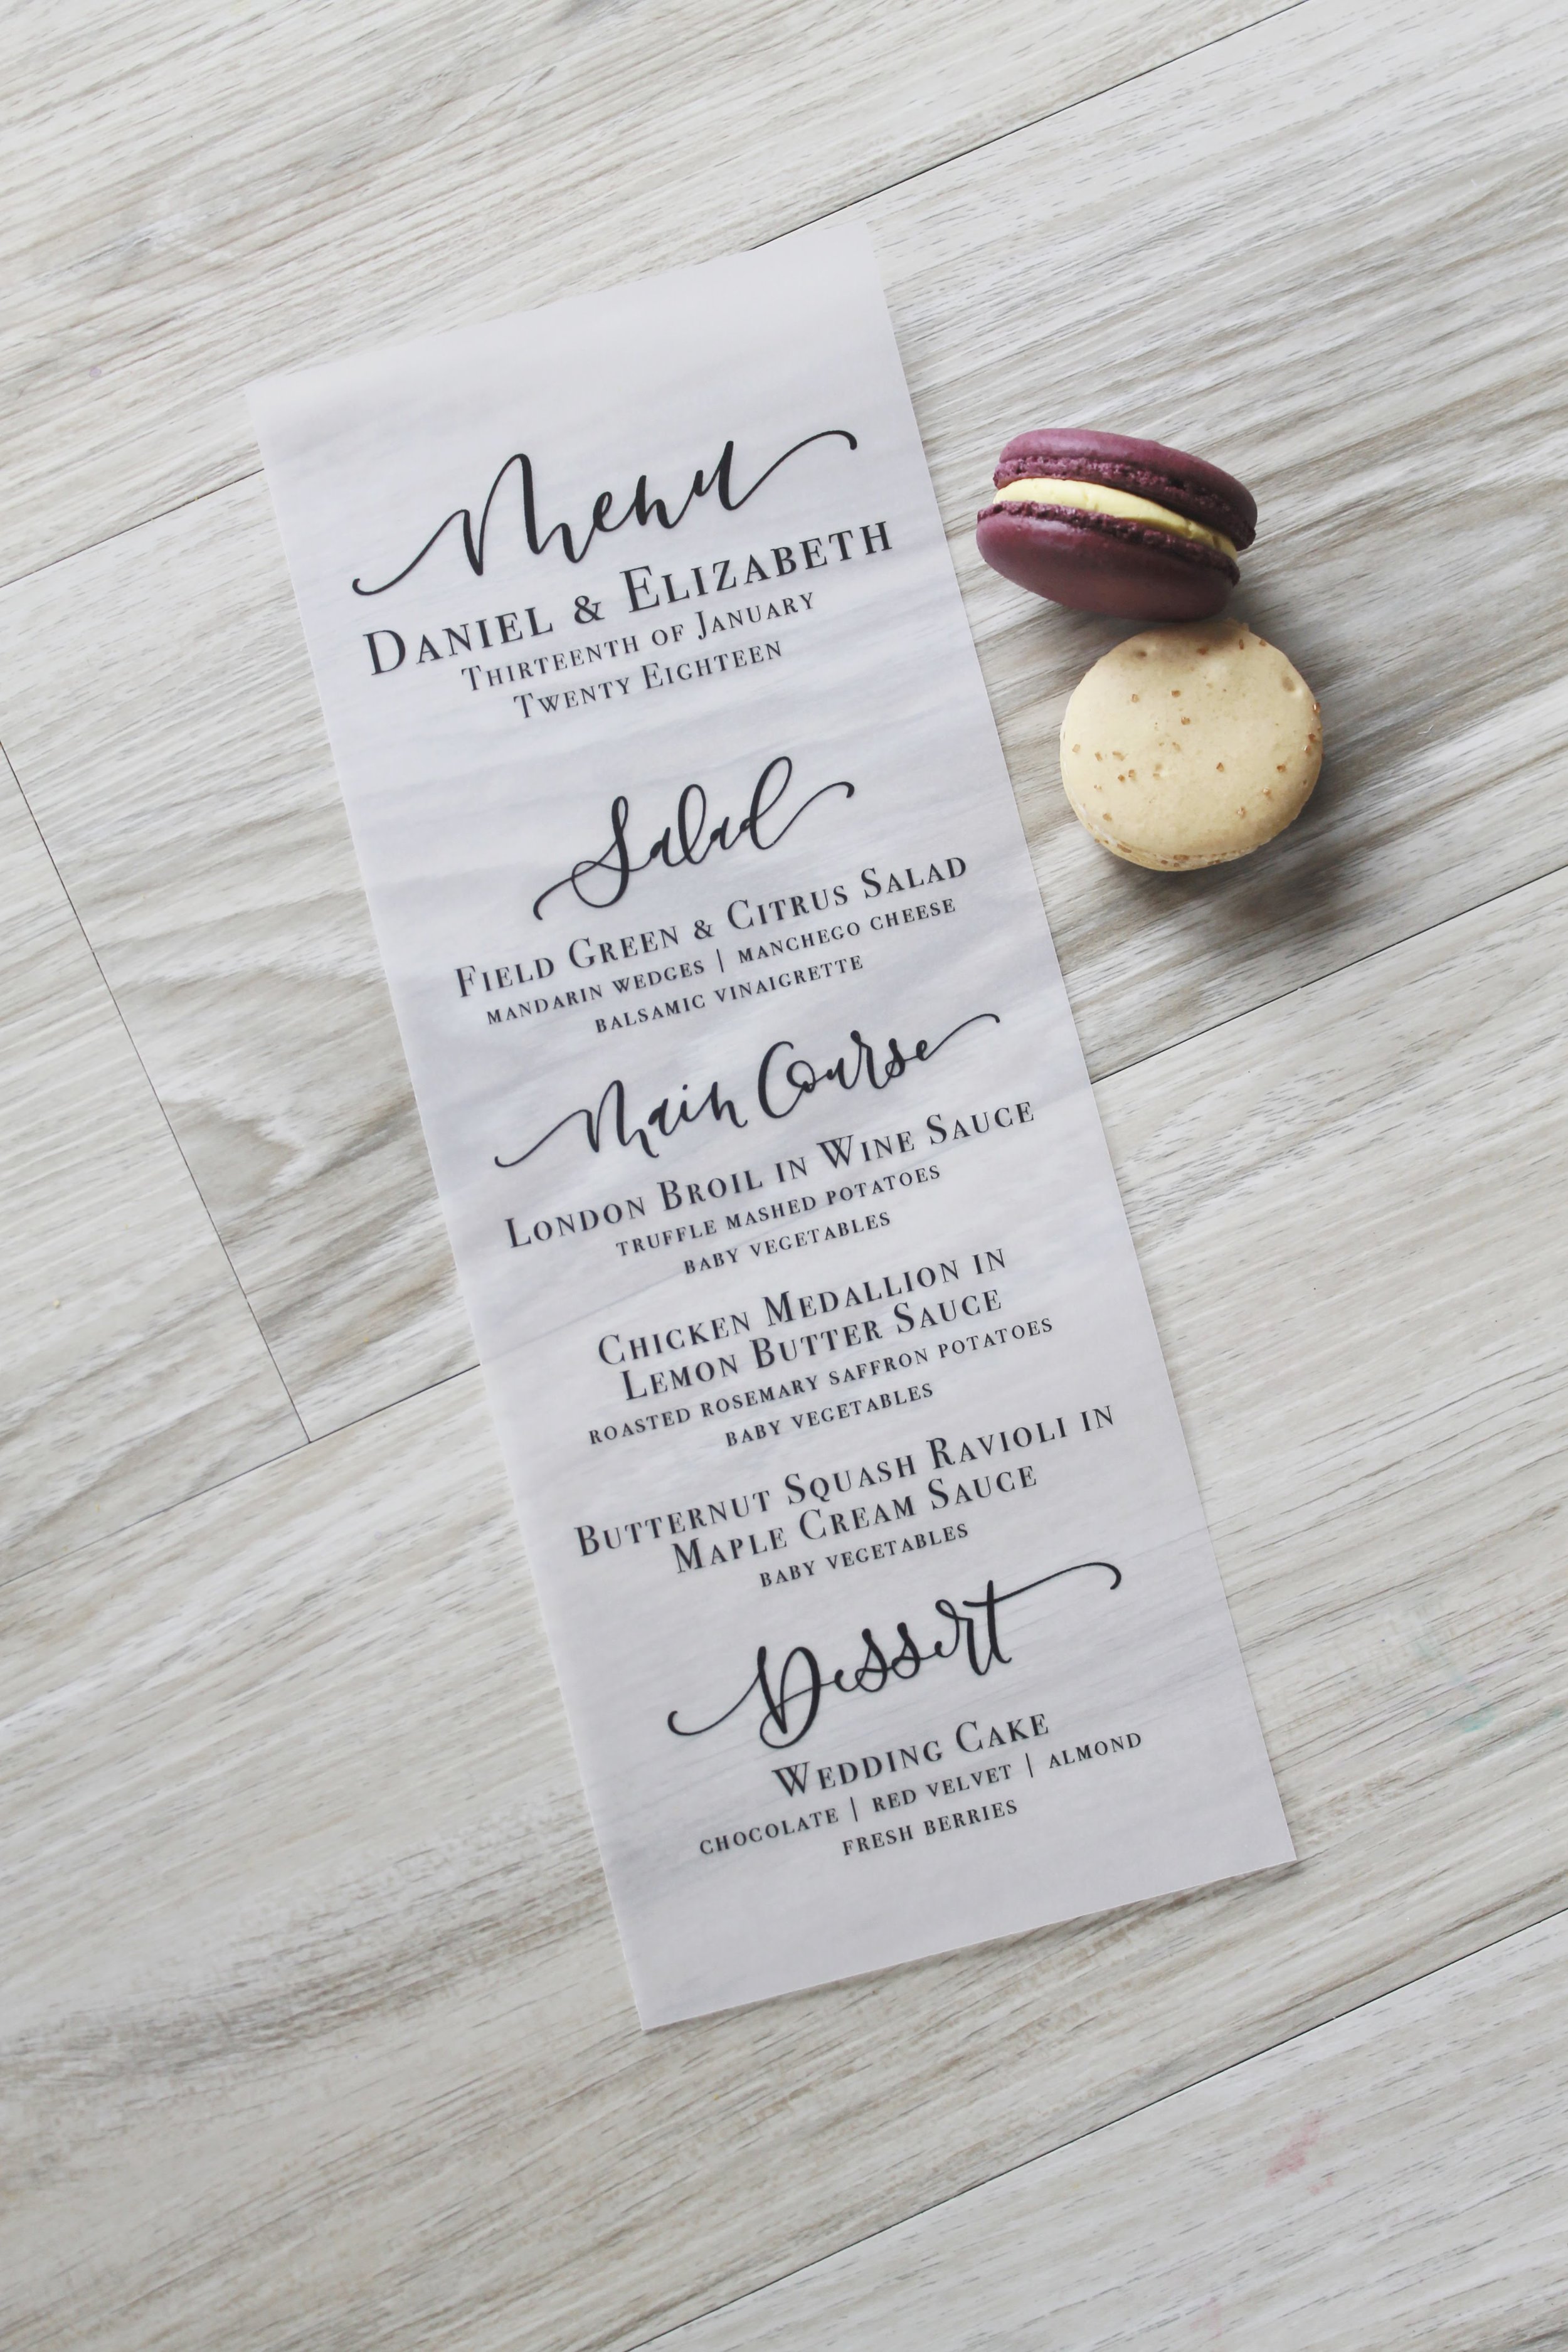 Menu
Daniel & Elizabeth
Thirteenth of January
Twenty Eighteen
Salad
Field Green & Citrus Salad
mandarin wedges | manchego cheese
balsamic vinaigrette
Main Course
London Broil in Wine Sauce
truffle mashed potatoes
baby vegetables
Chicken Medallion in
Lemon Butter Sauce
roasted rosemary saffron potatoes
baby vegetables
Butternut Squash Ravioli in
Maple Cream Sauce
baby vegetables
Dessert
Wedding Cake
chocolate | red velvet | almond
fresh berries